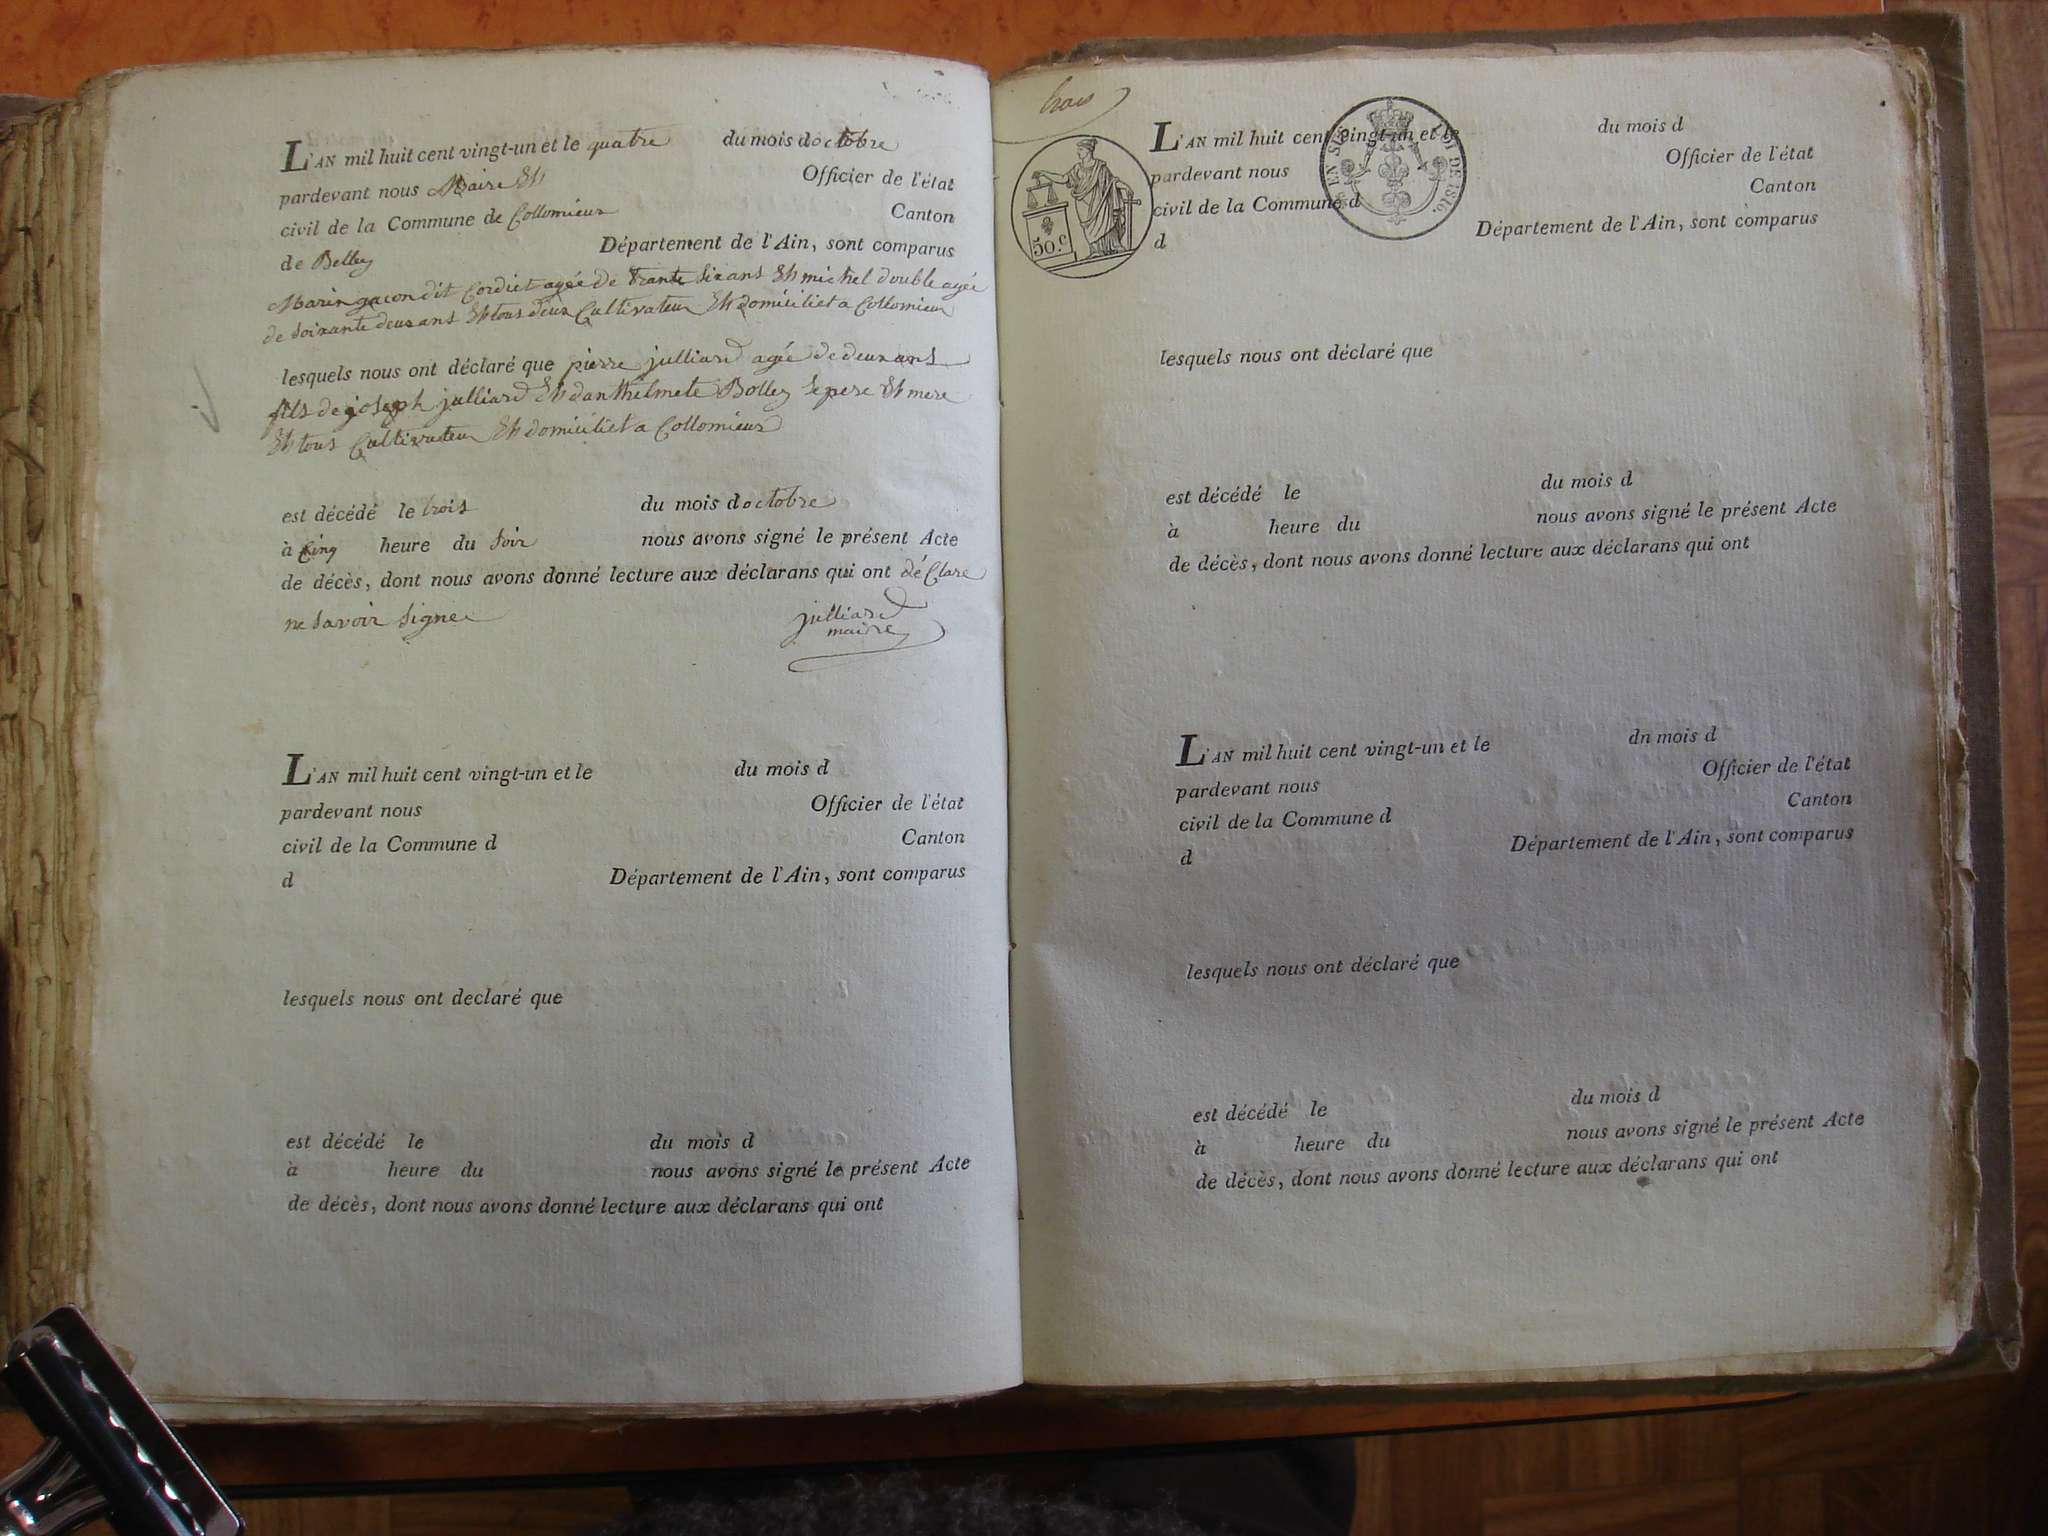 L'AN mil huit cent vingt-un et le quatre du mois doctobre
pardevant nous Maire Et Officier de l'état
civil de la Commune de Collomieux Canton
de Belley Département de l'Ain, sont comparus
Marin gacon dit Cordiet agée de trante Six ans Et michel double agée
de Soixante deux ans Et tous deux Cultivateur Et domiciliet a Collomieux
lesquels nous ont déclaré que pierre julliard agée de deux ans
fils de joseph julliard Et danthelmete Bolley le pere Et mere
Et tous Cultivateur Et domiciliet a Collomieux
est décédé le trois du mois doctobre
à Cinq heure du Soir nous avons signé le présent Acte
de décès, dont nous avons donné lecture aux déclarans qui ont déClare
ne Savoir Signe
julliard
maire
L'AN mil huit cent vingt-un et le du mois d
pardevant nous Officier de l'état
civil de la Commune d Canton
d Département de l'Ain, sont comparus
lesquels nous ont declaré que
est décédé le du mois d
à heure du nous avons signé le présent Acte
de décès, dont nous avons donné lecture aux déclarans qui ont
trois
50.c
LOI DE 1816.
L'AN mil huit cent vingt-un et le du mois d
pardevant nous Officier de l'état
civil de la Commune d Canton
d Département de l'Ain, sont comparus
lesquels nous ont déclaré que
est décédé le du mois d
à heure du nous avons signé le présent Acte
de décès, dont nous avons donné lecture aux déclarans qui ont
L'AN mil huit cent vingt-un et le dn mois d
pardevant nous Officier de l'état
civil de la Commune d Canton
d Département de l'Ain, sont comparus
lesquels nous ont déclaré que
est décédé le du mois d
à heure du nous avons signé le présent Acte
de décès, dont nous avons donné lecture aux déclarans qui ont